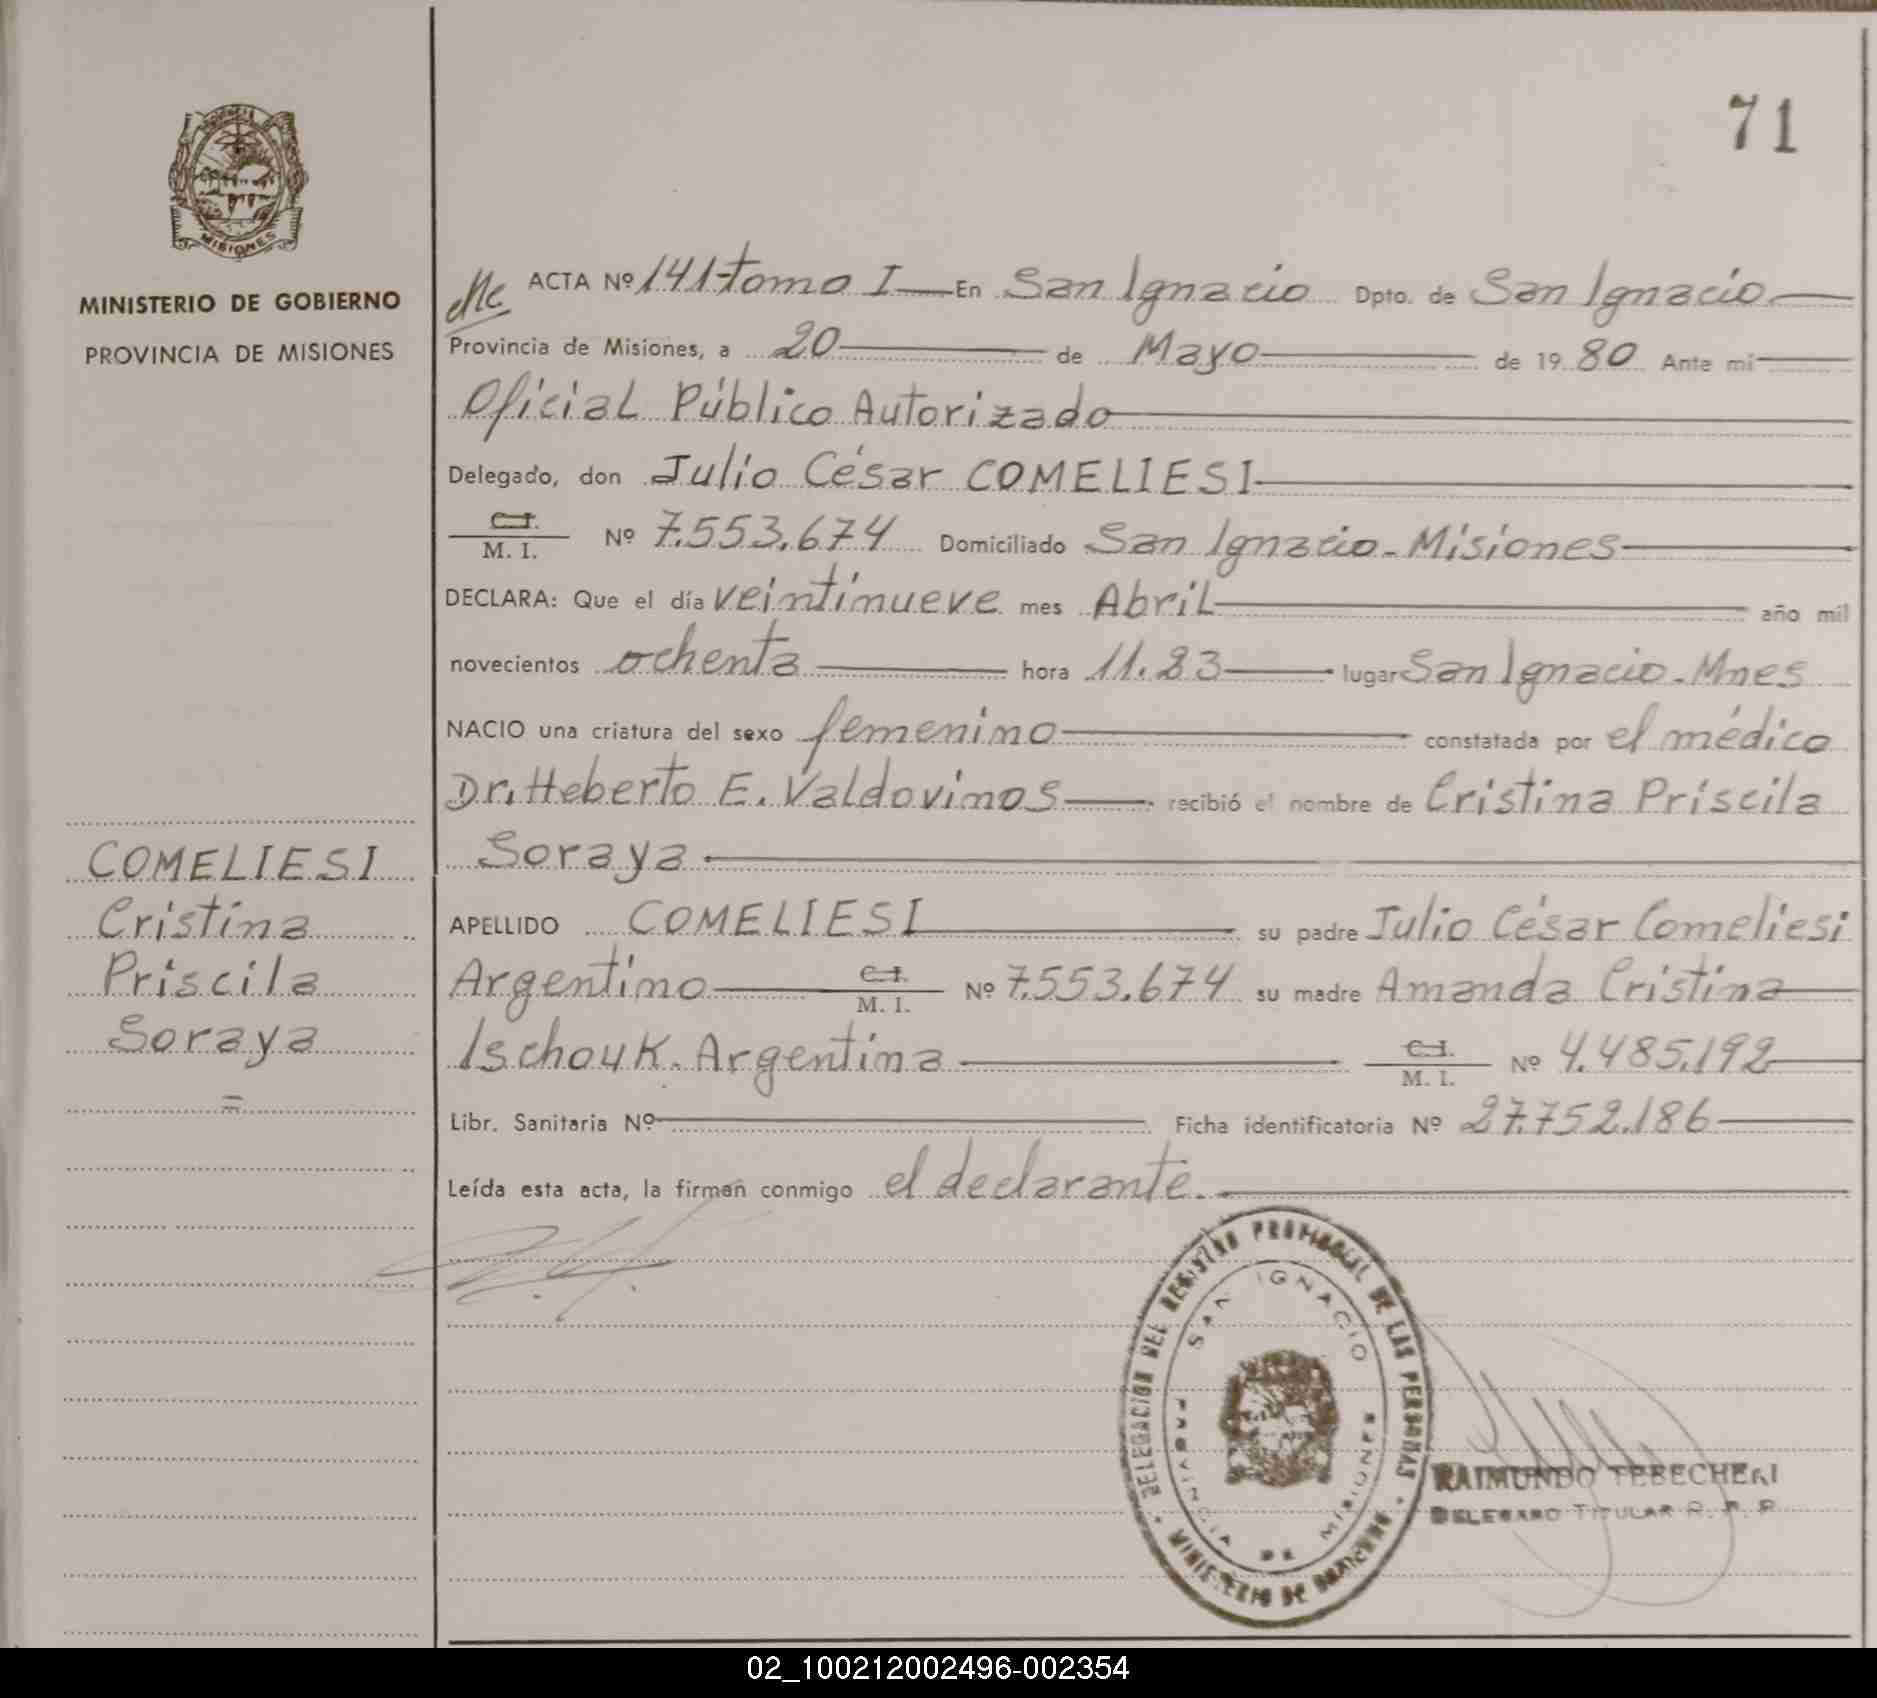 71
MISIONES
MINISTERIO DE GOBIERNO
PROVINCIA DE MISIONES
COMELIESI
Cristina
Priscila
Soraya
=
ACTA Nº 141-tomo I En San Ignacio Dpto. de San Ignacio
Provincia de Misiones, a 20 de Mayo de 1980 Ante mi
Oficial Público Autorizado
Delegado, don Julio César COMELIESI
C.I.
M. I. Nº 7.553.674 Domiciliado San Ignacio-Misiones
DECLARA: Que el día veintinueve mes Abril año mil
novecientos ochenta hora 11.23 lugar San Ignacio-Mnes
NACIO una criatura del sexo femenino constatada por el médico
Dr. Heberto E. Valdovinos recibió el nombre de Cristina Priscila
Soraya
APELLIDO COMELIESI su padre Julio César Comeliesi
Argentino C.I. M. I. Nº 7.553.674 su madre Amanda Cristina
Ischouk. Argentina C.I. M. I. Nº 4.485.192
Libr. Sanitaria Nº Ficha identificatoria Nº 27.752.186
Leída esta acta, la firman conmigo el declarante.
DELEGACION DEL REGISTRO PROVINCIAL DE LAS PERSONAS
SAN IGNACIO
PROVINCIA DE MISIONES
MINISTERIO DE GOBIERNO
RAIMUNDO TEBECHERI
DELEGADO TITULAR R. P. P.
02_100212002496-002354